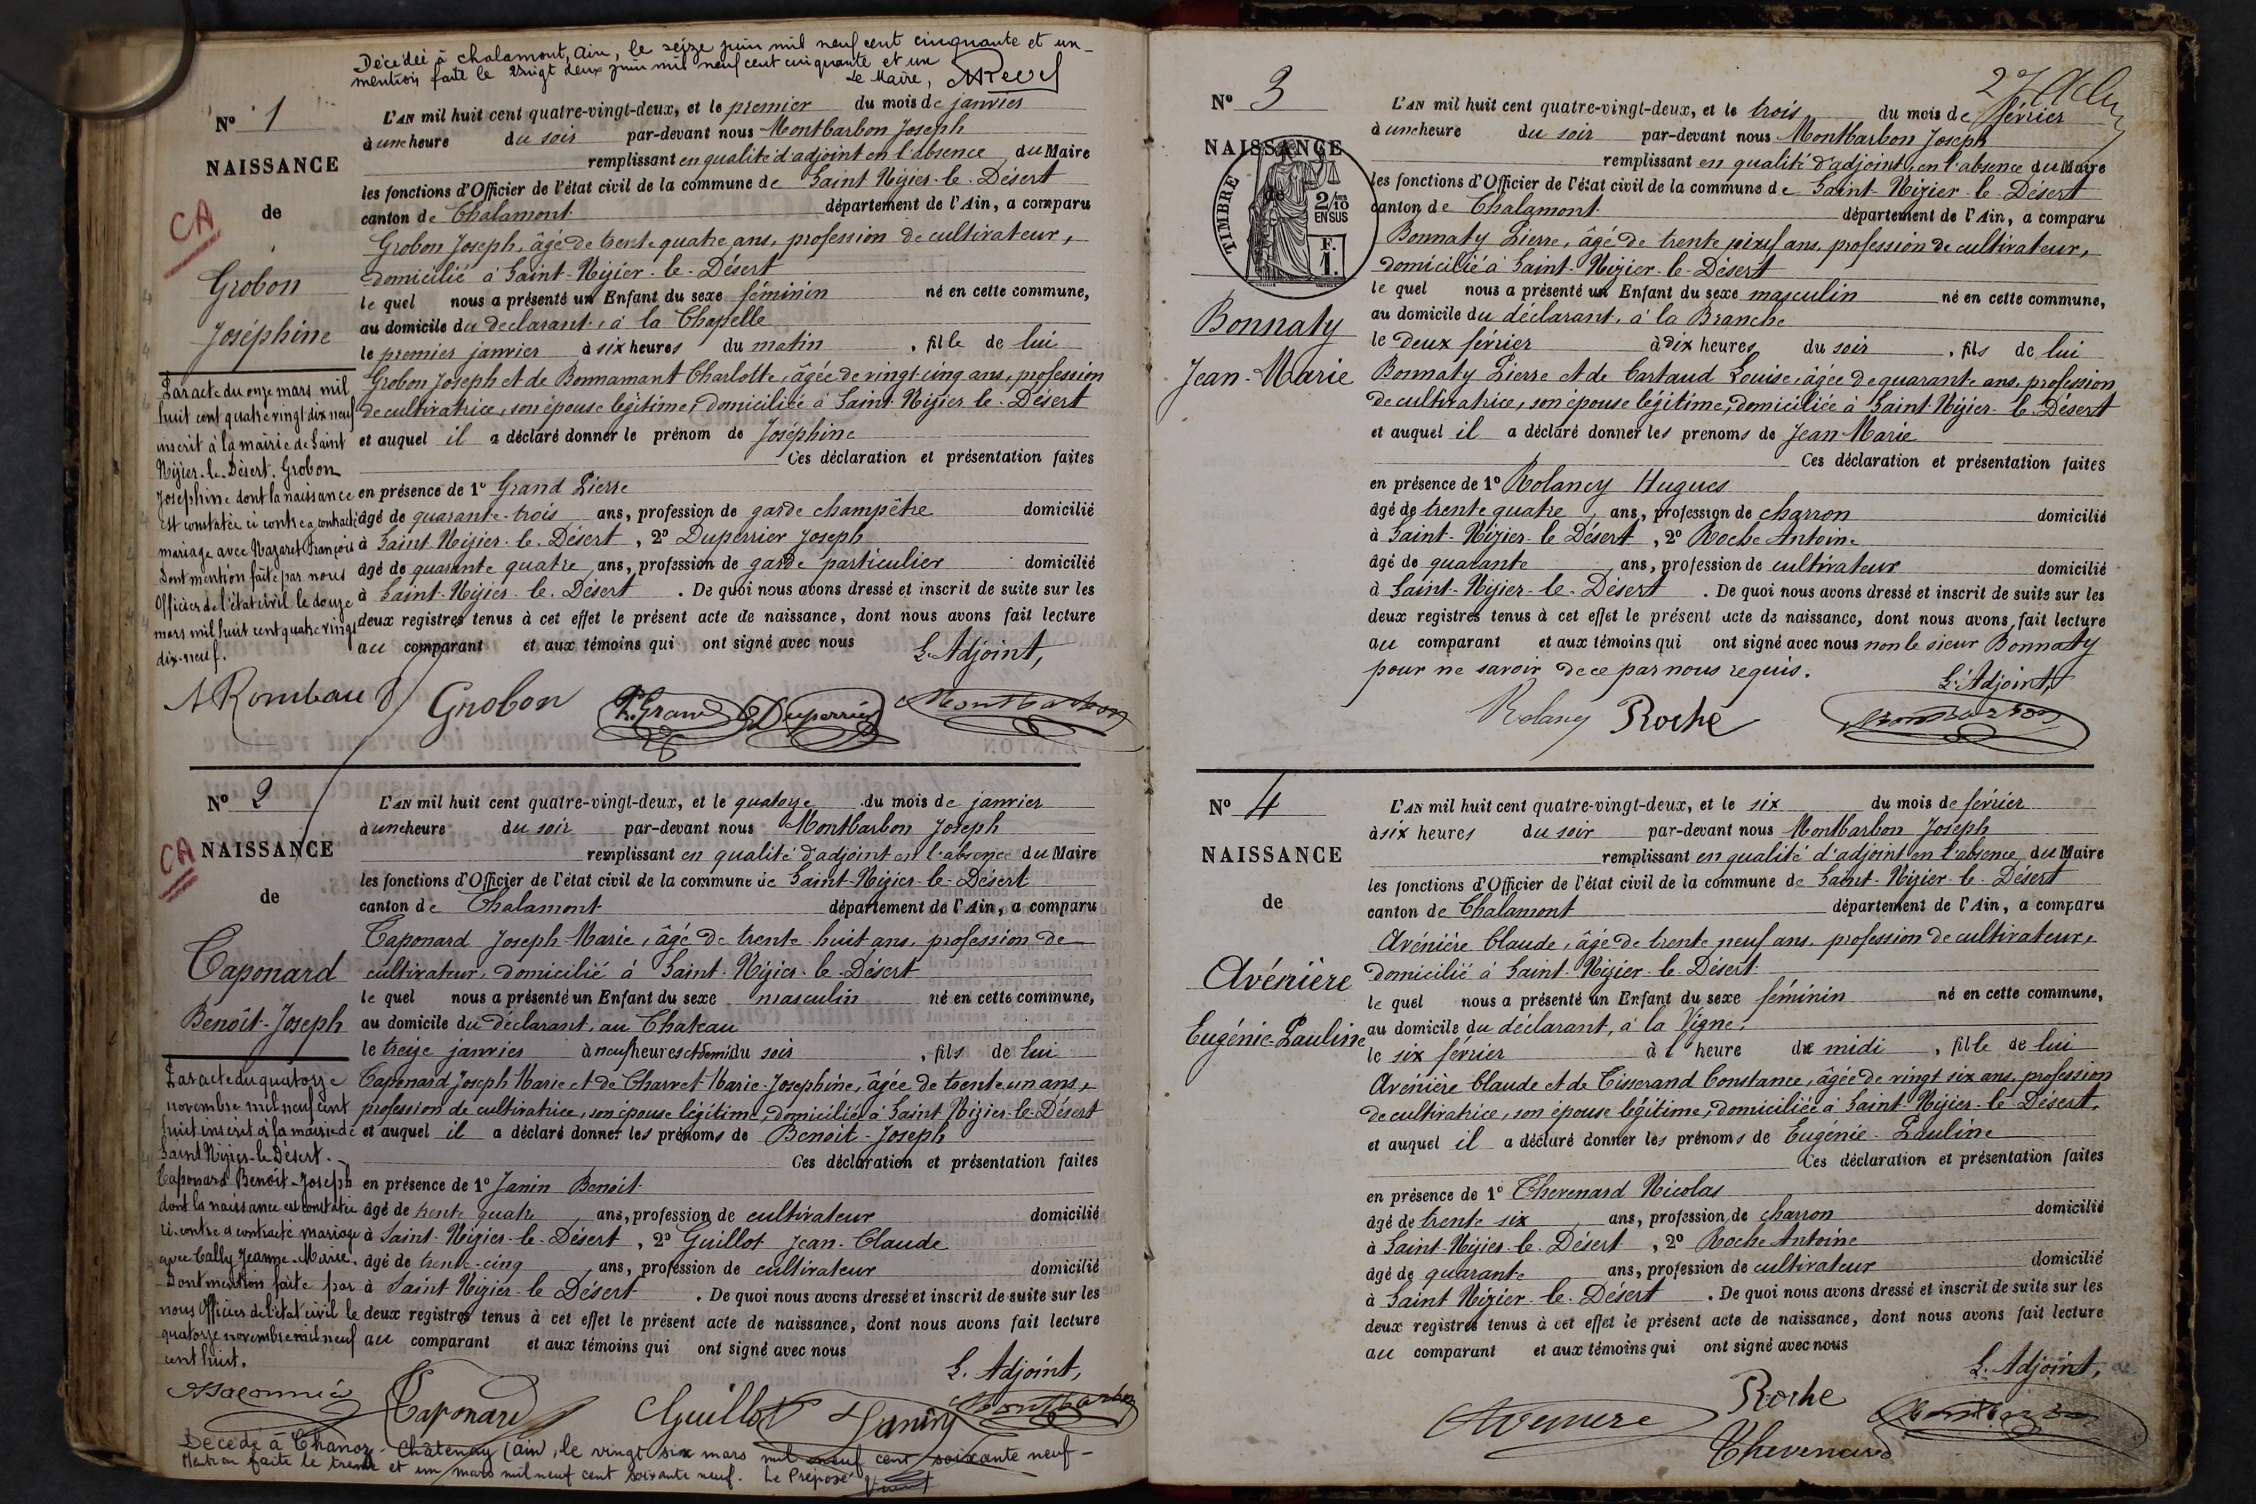 Décédée à Chalamont, Ain, le seize juin mil neuf cent cinquante et un -
mention faite le vingt deux juin mil neuf cent cinquante et un
Le Maire,
N° 1
NAISSANCE
de
CA
Grobon
Joséphine
Par acte du onze mars mil
huit cent quatre vingt dix neuf
inscrit à la mairie de Saint
Nizier-le-Désert. Grobon
Joséphine dont la naissance
est constatée ci contre a contracté
mariage avec Nazaret François
Dont mention faite par nous
Officier de l'état civil le douze
mars mil huit cent quatre vingt
dix-neuf.
L'AN mil huit cent quatre-vingt-deux, et le premier du mois de janvier
à une heure du soir par-devant nous Montbarbon Joseph
remplissant en qualité d'adjoint en l'absence du Maire
les fonctions d'Officier de l'état civil de la commune de Saint Nizier-le-Désert
canton de Chalamont département de l'Ain, a comparu
Grobon Joseph, âgé de trente quatre ans, profession de cultivateur,
domicilié à Saint-Nizier-le-Désert
le quel nous a présenté un Enfant du sexe féminin né en cette commune,
au domicile du déclarant, à la Chapelle
le premier janvier à six heures du matin, fille de lui
Grobon Joseph et de Bonnamant Charlotte, âgée de vingt cinq ans, profession
de cultivatrice, son épouse légitime, domiciliée à Saint-Nizier-le-Désert
et auquel il a déclaré donner le prénom de Joséphine
Ces déclaration et présentation faites
en présence de 1° Grand Pierre
âgé de quarante-trois ans, profession de garde champêtre domicilié
à Saint-Nizier-le-Désert, 2° Duperrier Joseph
âgé de quarante quatre ans, profession de garde particulier domicilié
à Saint-Nizier-le-Désert. De quoi nous avons dressé et inscrit de suite sur les
deux registres tenus à cet effet le présent acte de naissance, dont nous avons fait lecture
au comparant et aux témoins qui ont signé avec nous
L'Adjoint,
Grobon P. Grand Duperrier Montbarbon
N° 2
NAISSANCE
de
CA
Caponard
Benoît-Joseph
Par acte du quatorze
novembre mil neuf cent
huit inscrit à la mairie de
Saint Nizier-le-Désert.
Caponard Benoît-Joseph
dont la naissance est constatée
ci-contre a contracté mariage
avec Cally Jeanne-Marie.
Dont mention faite par
nous Officier de l'état civil le
quatorze novembre mil neuf
cent huit.
L'AN mil huit cent quatre-vingt-deux, et le quatorze du mois de janvier
à une heure du soir par-devant nous Montbarbon Joseph
remplissant en qualité d'adjoint en l'absence du Maire
les fonctions d'Officier de l'état civil de la commune de Saint-Nizier-le-Désert
canton de Chalamont département de l'Ain, a comparu
Caponard Joseph-Marie, âgé de trente-huit ans, profession de
cultivateur, domicilié à Saint-Nizier-le-Désert
le quel nous a présenté un Enfant du sexe masculin né en cette commune,
au domicile du déclarant, au Chateau
le treize janvier à neuf heures et demi du soir, fils de lui
Caponard Joseph Marie et de Charvet Marie-Josephine, âgée de trente un ans,
profession de cultivatrice, son épouse légitime, domiciliée à Saint Nizier-le-Désert
et auquel il a déclaré donner les prénoms de Benoit-Joseph
Ces déclaration et présentation faites
en présence de 1° Janin Benoit
âgé de trente quatre ans, profession de cultivateur domicilié
à Saint-Nizier-le-Désert, 2° Guillot Jean-Claude
âgé de trente-cinq ans, profession de cultivateur domicilié
à Saint Nizier-le Désert. De quoi nous avons dressé et inscrit de suite sur les
deux registres tenus à cet effet le présent acte de naissance, dont nous avons fait lecture
au comparant et aux témoins qui ont signé avec nous
L'Adjoint,
Caponard Guillot Janin Montbarbon
Décédé à Chanoz-Châtenay (Ain), le vingt six mars mil neuf cent soixante neuf -
Mention faite le trente et un mars mil neuf cent soixante neuf. Le Préposé
N° 3
NAISSANCE
de
TIMBRE
2/10
EN SUS
F.
1.
Bonnaty
Jean-Marie
L'AN mil huit cent quatre-vingt-deux, et le trois du mois de février
à une heure du soir par-devant nous Montbarbon Joseph
remplissant en qualité d'adjoint, en l'absence du Maire
les fonctions d'Officier de l'état civil de la commune de Saint-Nizier-le-Désert
canton de Chalamont département de l'Ain, a comparu
Bonnaty Pierre, âgé de trente neuf ans, profession de cultivateur,
domicilié à Saint-Nizier-le-Désert
le quel nous a présenté un Enfant du sexe masculin né en cette commune,
au domicile du déclarant, à la Branche
le deux février à dix heures du soir, fils de lui
Bonnaty Pierre et de Cartaud Louise, âgée de quarante ans, profession
de cultivatrice, son épouse légitime, domiciliée à Saint-Nizier-le-Désert
et auquel il a déclaré donner les prenoms de Jean Marie
Ces déclaration et présentation faites
en présence de 1° Rolancy Hugues
âgé de trente quatre ans, profession de charron domicilié
à Saint-Nizier-le Désert, 2° Roche Antoine
âgé de quarante ans, profession de cultivateur domicilié
à Saint-Nizier-le-Désert. De quoi nous avons dressé et inscrit de suite sur les
deux registres tenus à cet effet le présent acte de naissance, dont nous avons fait lecture
au comparant et aux témoins qui ont signé avec nous non le sieur Bonnaty
pour ne savoir de ce par nous requis.
L'Adjoint,
Rolancy Roche Montbarbon
N° 4
NAISSANCE
de
Avénière
Eugénie-Pauline
L'AN mil huit cent quatre-vingt-deux, et le six du mois de février
à six heures du soir par-devant nous Montbarbon Joseph
remplissant en qualité d'adjoint en l'absence du Maire
les fonctions d'Officier de l'état civil de la commune de Saint-Nizier-le-Désert
canton de Chalamont département de l'Ain, a comparu
Avénière Claude, âgé de trente neuf ans, profession de cultivateur,
domicilié à Saint-Nizier-le-Désert.
le quel nous a présenté un Enfant du sexe féminin né en cette commune,
au domicile du déclarant, à la Vigne.
le six février à l'heure de midi, fille de lui
Avénière Claude et de Tisserand Constance, âgée de vingt six ans, profession
de cultivatrice, son épouse légitime, domiciliée à Saint-Nizier-le-Désert,
et auquel il a déclaré donner les prénoms de Eugénie-Pauline
Ces déclaration et présentation faites
en présence de 1° Chevenard Nicolas
âgé de trente six ans, profession de charron domicilié
à Saint-Nizier-le-Désert, 2° Roche Antoine
âgé de quarante ans, profession de cultivateur domicilié
à Saint Nizier-le-Désert. De quoi nous avons dressé et inscrit de suite sur les
deux registres tenus à cet effet le présent acte de naissance, dont nous avons fait lecture
au comparant et aux témoins qui ont signé avec nous
L'Adjoint,
Avenière Roche Montbarbon
Chevenard